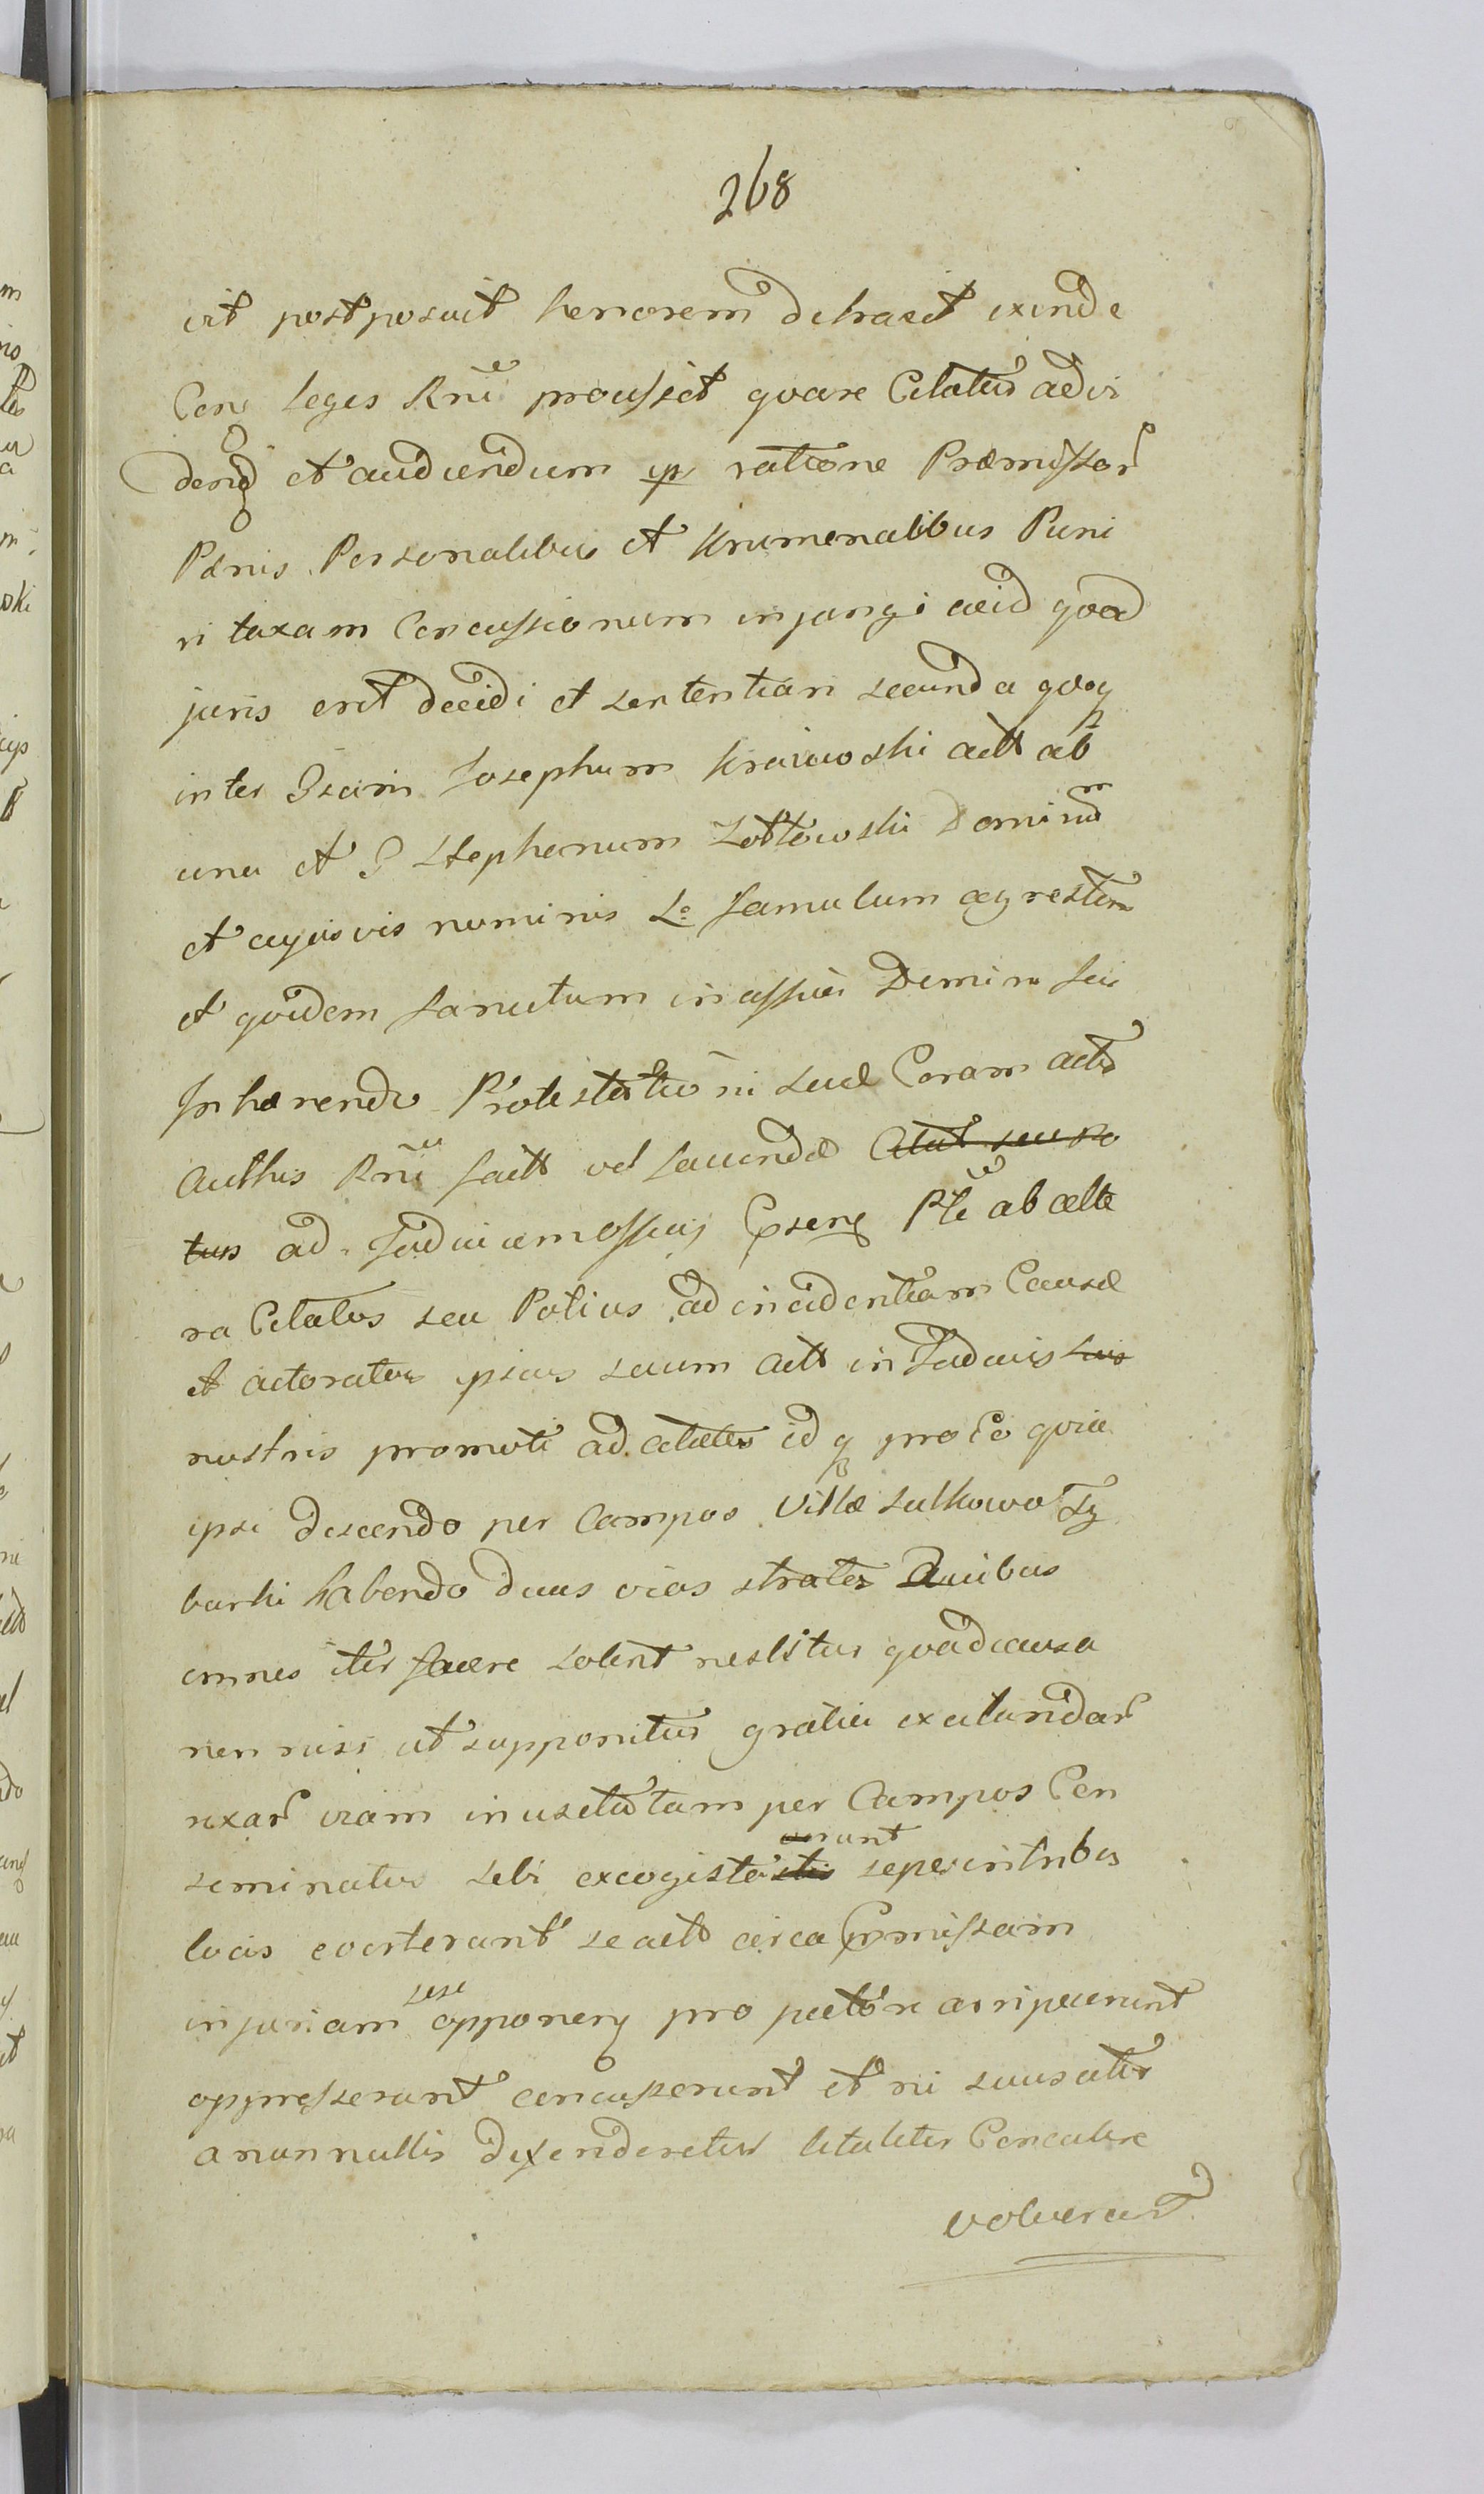 268
vit postposuit honorem detraxit exinde
Con Leges Rni proussit qvare Citatus ad vi
dend et audiendum ip ratione Præmissor
Pænis Personalibus et Kriminalibus Puni
ri taxam Concussionum injungi aeid qvod
juris erit decidi et sententiari secunda qvoq
inter Gsum Josephum Kraiewski actt ab
una et G Stephanum Zottowski Dominum
et cujusvis nominis Lo famulum agrestem
et qvidem Sanutum in assia Domini sui
Inhærendo Protestationi suæ Coram actis
Authis Rni factt vel faciendæ Citat seu Po
tius ad Judicium Officij Psens Pte ab alte
ra Citatos seu Potius ad incidentiam Causæ
et actoratus ipsius suum actt in Judiciis suis
nostris promoti ad citatos idq pro Eo qvia
ipsi discendo per Campos Villæ Sulkowo Ty
burki habendo duas vias stratas Quibus
omnes iter facere solent nescitur qvad causa
non nisi ut supponitur gratia excitandar
rixar viam inusitatam per Campos Con
seminatos sibi excogistastis arunt sepes in tribus
locis everterunt se actt circa Pmissam
injuriam sese opponens pro pectore arripuerunt
oppresserunt concusserunt et ni suus ater
a nonnullis defenderetur letaliter Concutere
voluerunt